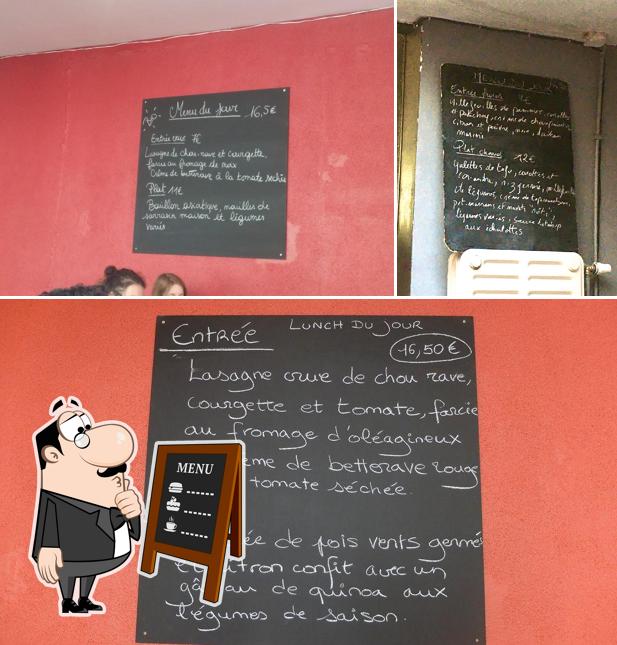 Menu du jour 16,5€
Entrée crue 7€
Lasagne de chou-rave et courgette,
farcie au fromage de noix
Crème de betterave à la tomate séchée
Plat 11€
Bouillon asiatique, nouilles de
sarrasin maison et légumes
variés
Entrée
Plat chaud 12€
galettes de tofu, carottes et
légumes variés, sauce
aux échalottes
Entrée LUNCH DU JOUR
16,50€
Lasagne crue de chou rave,
courgette et tomate, farcie
au fromage d'oléagineux
ème de betterave rouge
tomate séchée.
ée de pois verts germé
citron confit avec un
gâteau de quinoa aux
légumes de saison.
MENU